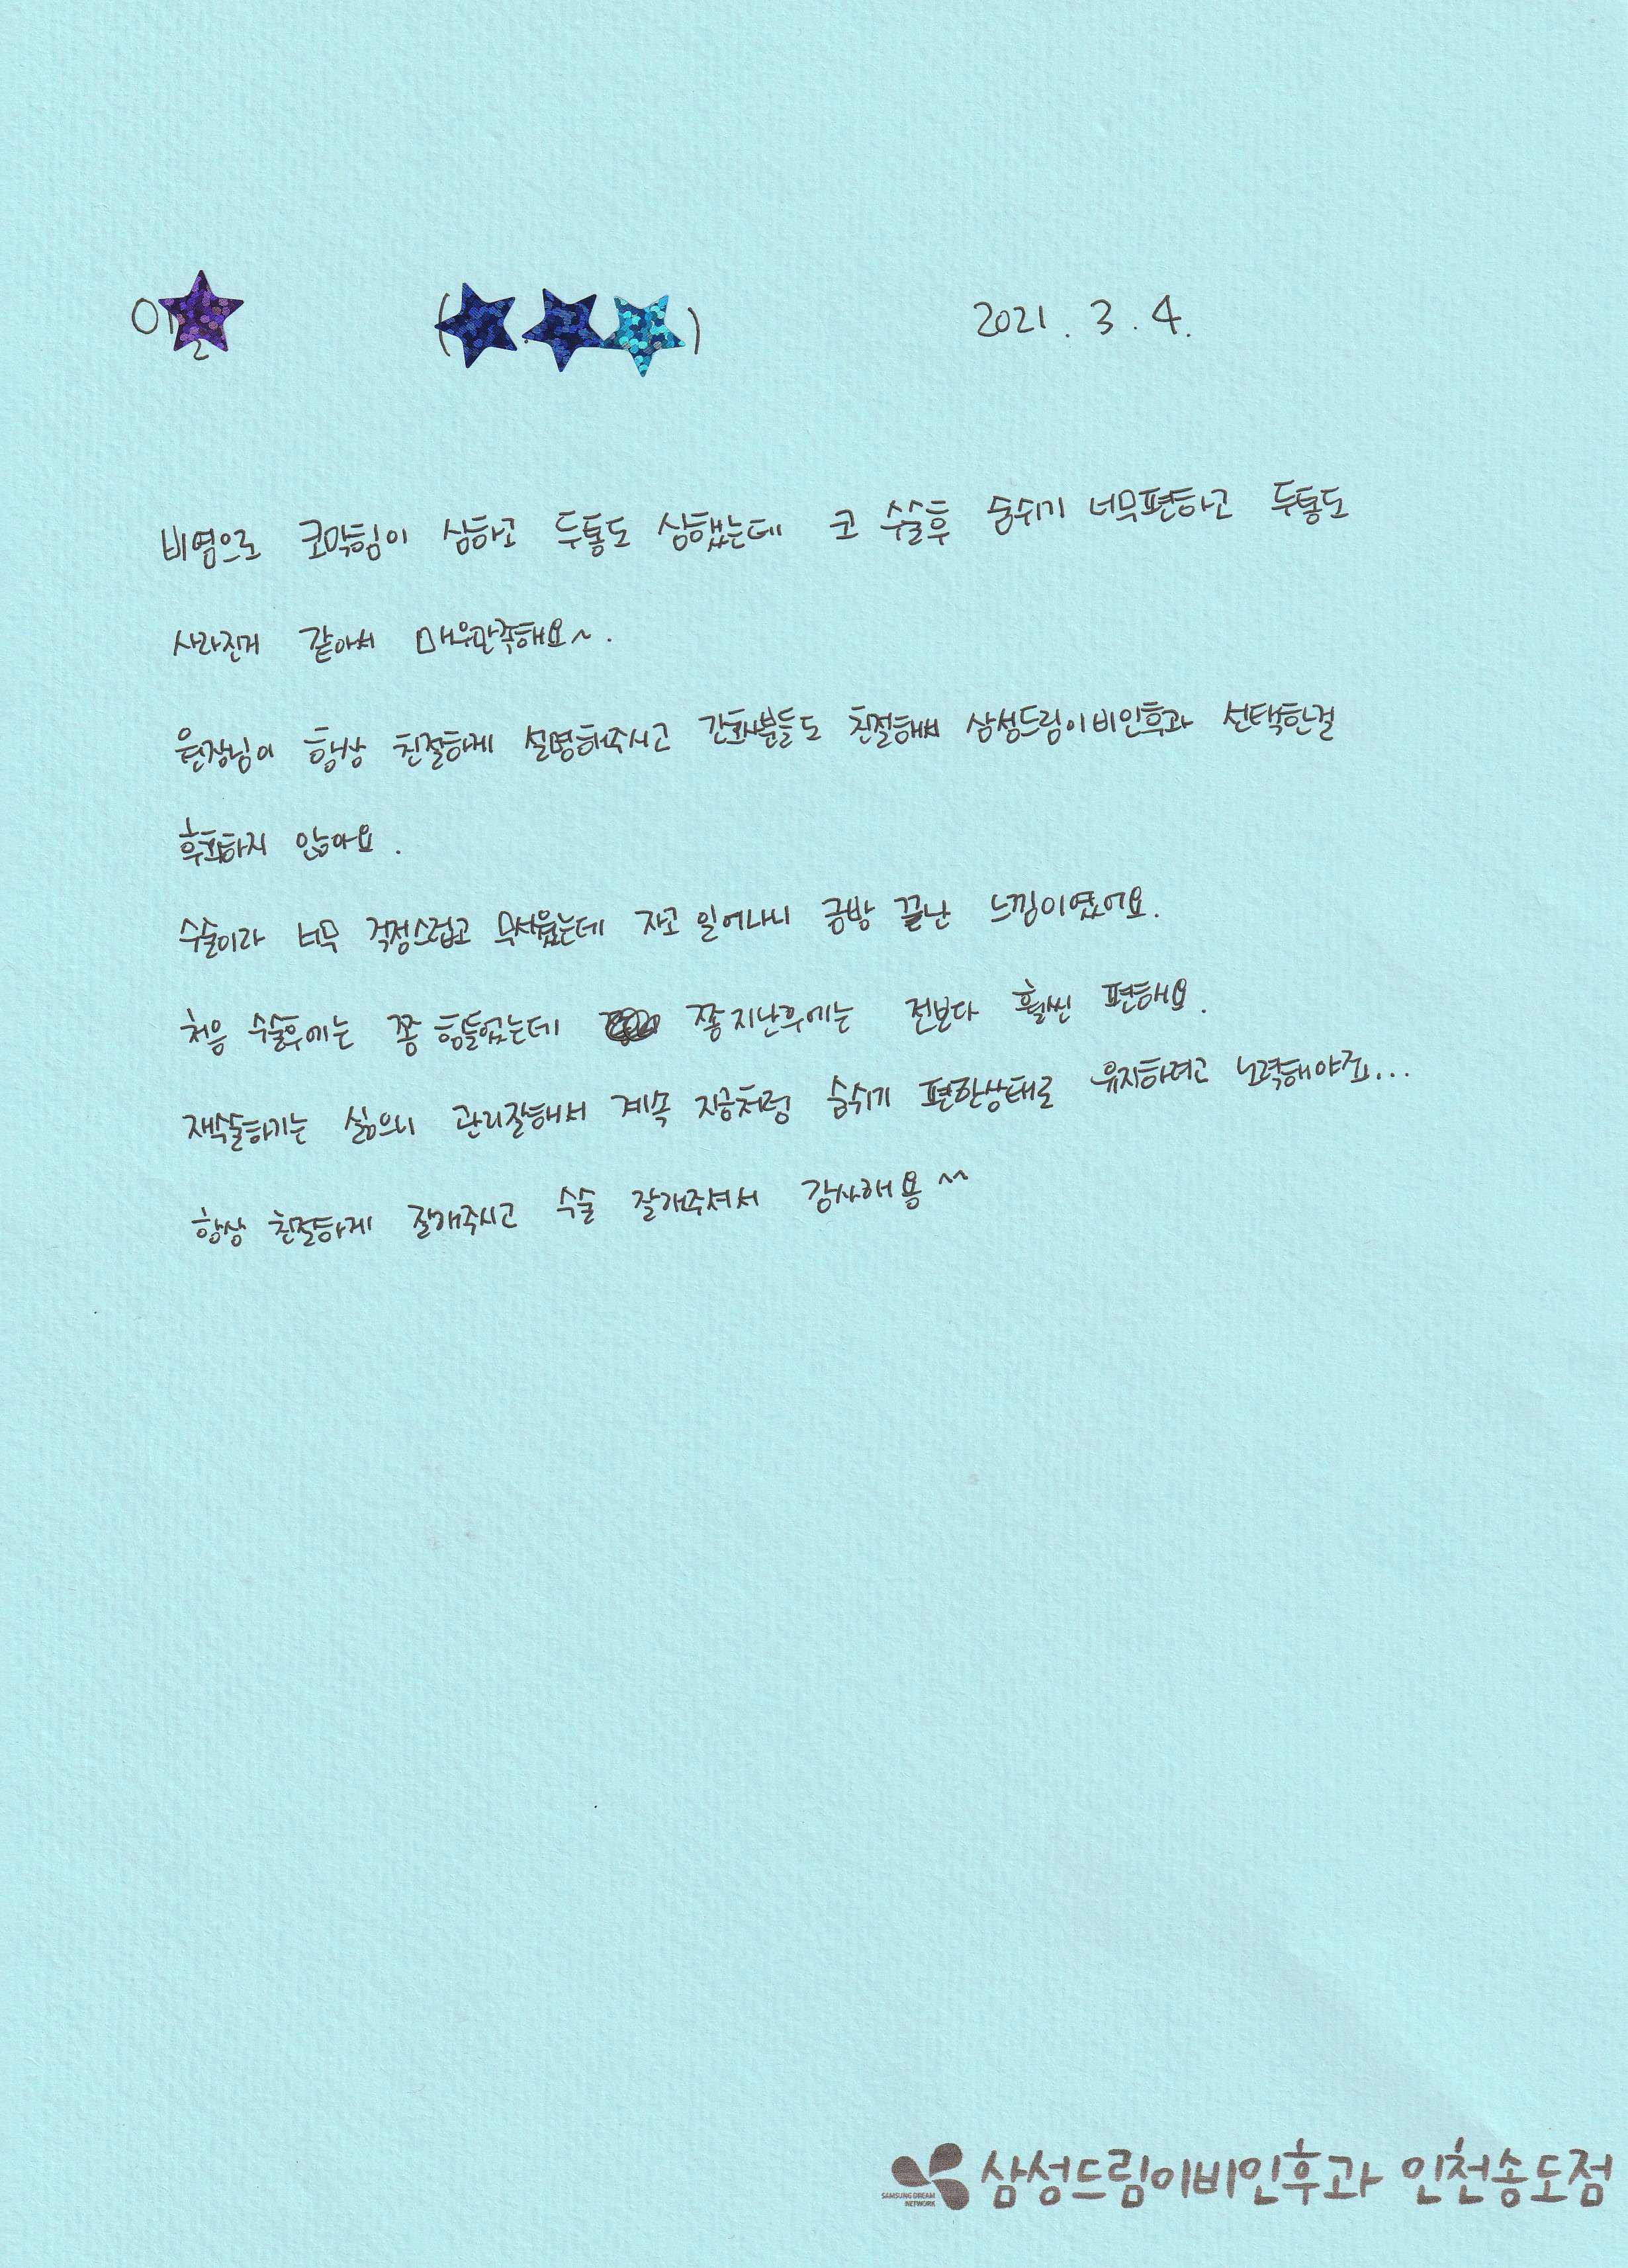 이 ( ) 2021. 3. 4.
비염으로 코막힘이 심하고 두통도 심했는데 코 수술후 숨쉬기 너무편하고 두통도
사라진거 같아서 매우만족해요~.
원장님이 항상 친절하게 설명해주시고 간호사분들도 친절해서 삼성드림이비인후과 선택한걸
후회하지 않아요.
수술이라 너무 걱정스럽고 무서웠는데 자고 일어나니 금방 끝난 느낌이였어요.
처음 수술후에는 쫌 힘들었는데 쫌지난후에는 전보다 훨씬 편해요.
재수술하기는 싫으니 관리잘해서 계속 지금처럼 숨쉬기 편한상태로 유지하려고 노력해야죠...
항상 친절하게 잘해주시고 수술 잘해주셔서 감사해용^^
SAMSUNG DREAM NETWORK 삼성드림이비인후과 인천송도점